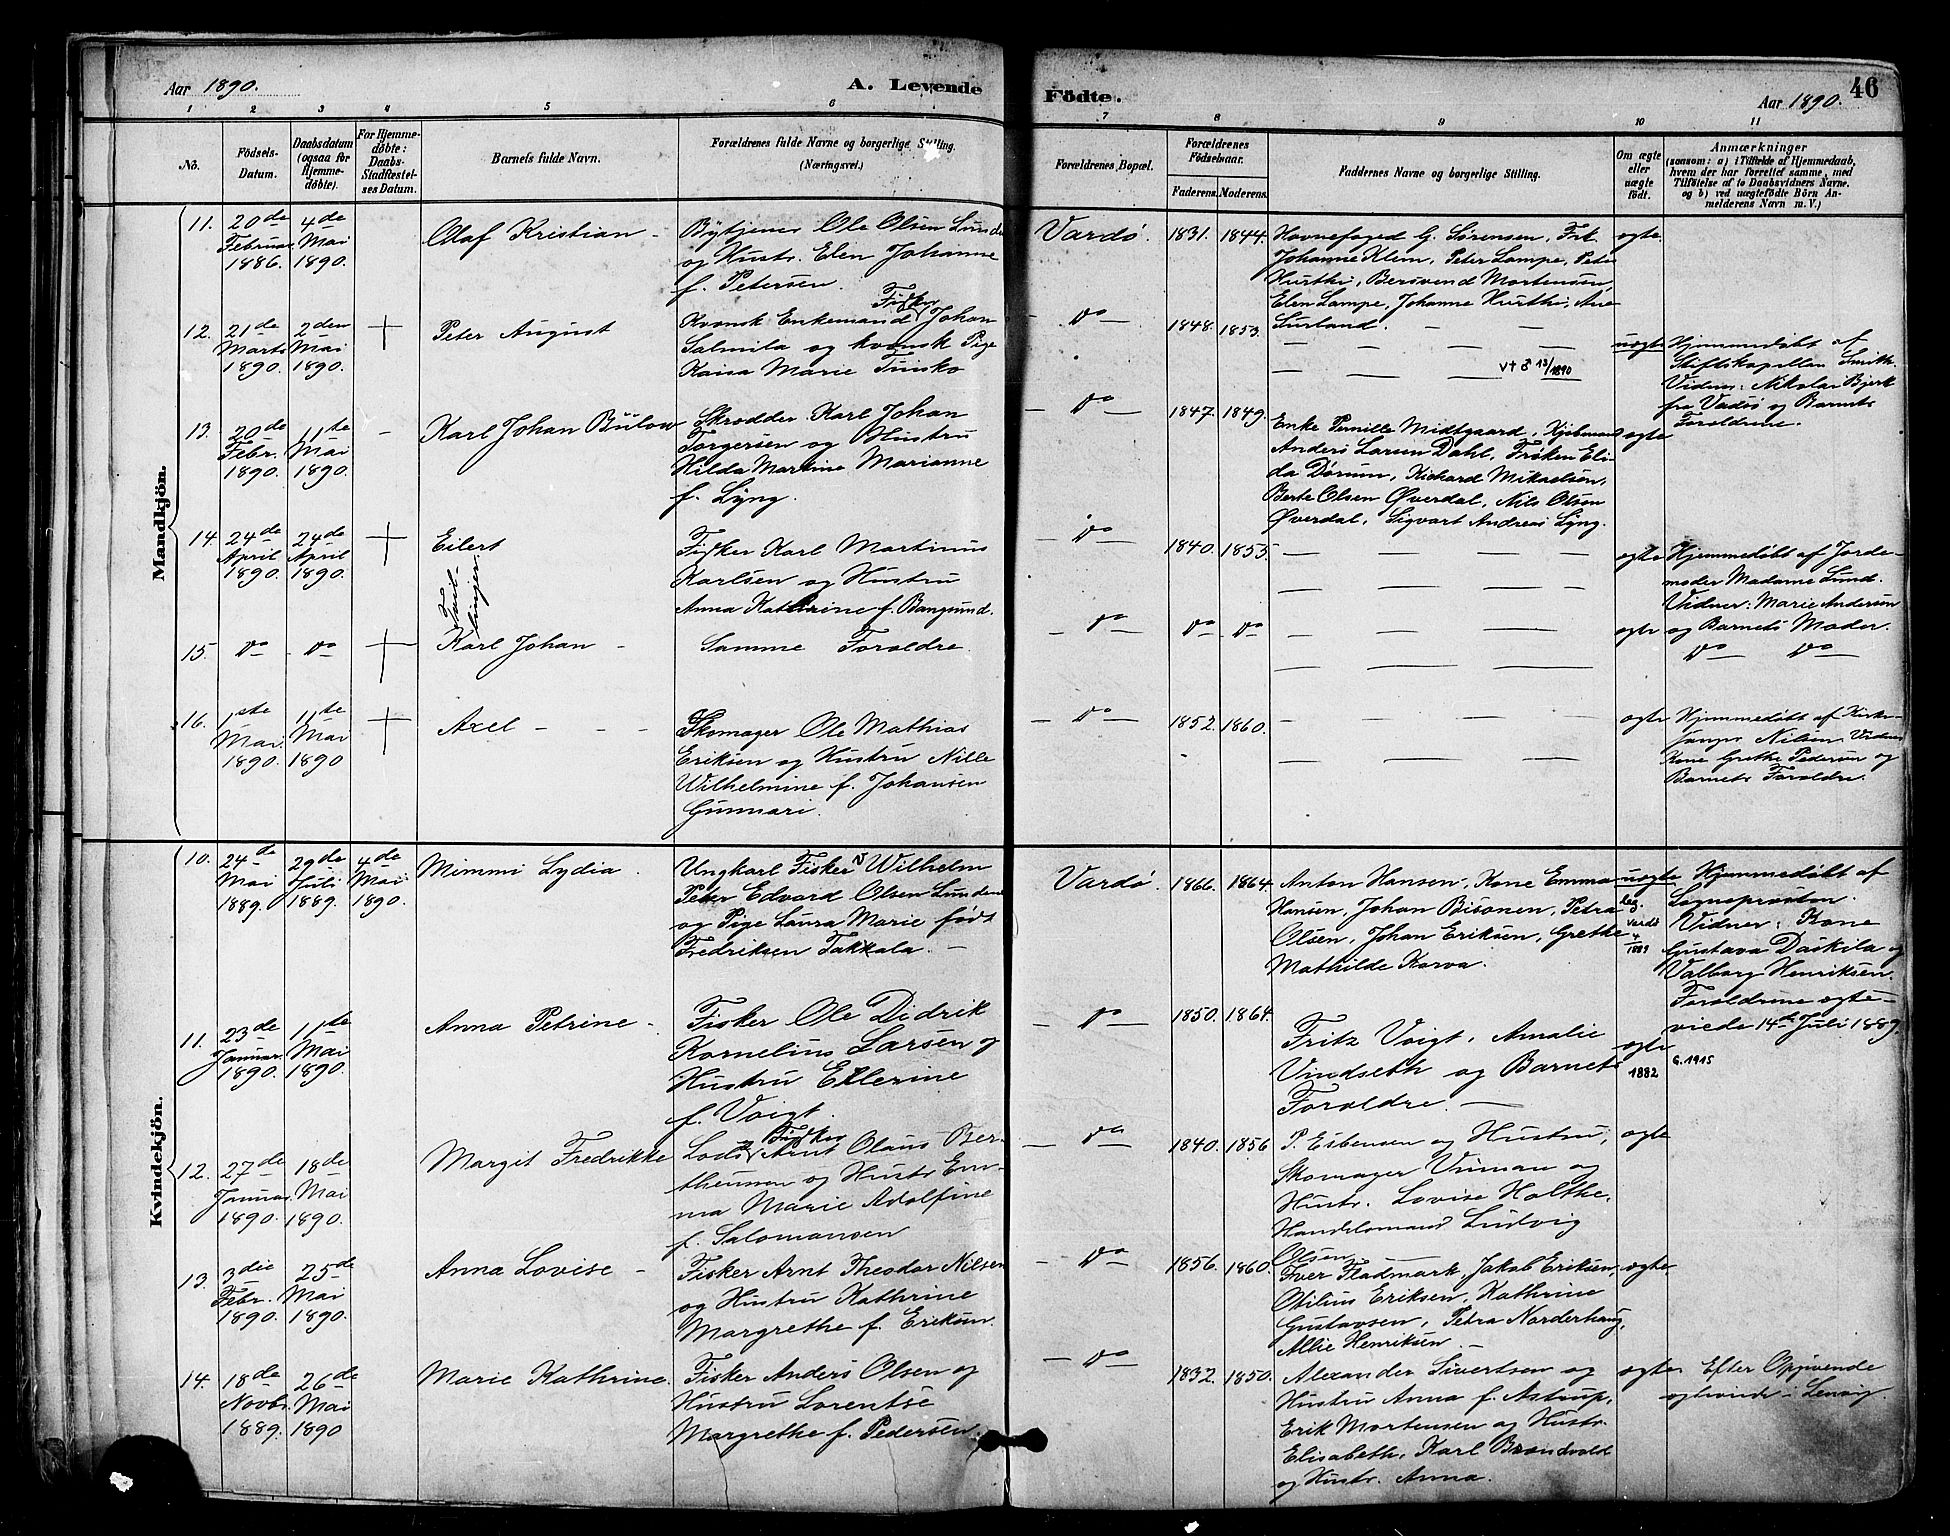 Aar 1890.
A. Levende
Födte.
Aar 1890.
46
1 2 3 4 5 6 7 8 9 10 11
No.
Födsels-
Datum.
Daabsdatum
(ogsaa for
Hjemme-
døbte).
For Hjemme-
døbte:
Daabs-
Stadfæstel-
ses Datum.
Barnets fulde Navn.
Forældrenes fulde Navne og borgerlige Stilling.
(Næringsvei.)
Forældrenes Bopæl.
Forældrenes
Födselsaar.
Faderens. Moderens.
Faddernes Navne og borgerlige Stilling.
Om ægte
eller
uægte
födt.
Anmærkninger
(saasom: a) i Tilfælde af Hjemmedaab,
hvem der har forrettet samme, med
Tilföielse af to Daabsvidners Navne.
og b) ved uægtefödte Börn An-
melderens Navn m. V.)
Mandkjön.
11.
20de
Februar
1886.
4de
Mai
1890.
Olaf Kristian -
Bytjener Ole Olsen Lunde
og Hustr. Elen Johanne
f. Petersen.
Vardø.
1831. 1844.
Havnefoged G. Sørensen, Frk.
Johanne Klem, Peter Lampe, Peter
Hurthi, Bersvend Mortensen,
Elen Lampe, Johanne Hurthi, Ane
Surland.
ægte
12.
21de
Marts
1890.
2den
Mai
1890.
+
Peter August
Kvensk Enkemand Fisker Johan
Salmila og kvensk Pige
Kaisa Marie Tunsko
- Do -
1848. 1853.
v† ♂ 13/1890
uægte
Hjemmedøbt af
Stiftskapellan Smith.
Vidner: Nikolai Bjerk
fra Vadsø og Barnets
Forældrene.
13.
20de
Febr.
1890.
11te
Mai
1890.
-
Karl Johan Bülow
Skrædder Karl Johan
Torgersen og Hustru
Hilda Martine Marianne
f. Lyng.
- Do -
1847. 1849.
Enke Pernille Midtgaard, Kjøbmand
Anders Larsen Dahl, Frøken Eli-
da Dørum, Richard Mikaelsen,
Berte Olsen Øverdal, Nils Olsen
Øverdal, Sigvart Andreas Lyng.
ægte
14.
24de
April
1890.
24de
April
1890.
+
Eilert
Tvil-
linger
Fisker Karl Martinus
Karlsen og Hustru
Anna Kathrine f. Bangsund.
- Do -
1840. 1855.
ægte
Hjemmedøbt af Jorde-
moder Madame Lund.
Vidner: Marie Andersen
og Barnets Moder.
15.
Do
Do
+
Karl Johan -
Samme Forældre.
- Do -
Do Do
ægte
Do Do
16.
1ste
Mai
1890.
11te
Mai
1890
+
Axel - - -
Skomager Ole Mathias
Eriksen og Hustru Nille
Wilhelmine f. Johansen
Gunnari.
- Do -
1852. 1860.
ægte
Hjemmedøbt af Kirke-
sanger Nilsen. Vidner
Kone Grethe Pedersen og
Barnets Forældre.
Kvindekjön.
10.
24de
Mai
1889.
29de
Juli
1889.
4de
Mai
1890.
Mimmi Lydia.
Ungkarl Fisker Wilhelm
Peter Edvard Olsen Lunden
og Pige Laura Marie født
Fredriksen Takkala. -
Vardø.
1866. 1864.
Anton Hansen, Kone Emma
Hansen, Johan Bisonen, Petra
Olsen, Johan Eriksen, Grethe
Mathilde Korva.
uægte
leg.
Vardö
1889
Hjemmedøbt af
Sogneprøsten.
Vidner: Kone
Gustava Daskila og
Valborg Henriksen.
Forældrene ægte-
viede 14de Juli 1889
11.
23de
Januar
1890.
11te
Mai
1890.
Anna Petrine -
Fisker Ole Didrik
Kornelius Larsen og
Hustru Ellerine
f. Voigt.
- Do -
1850. 1864.
Fritz Voigt, Amalie
Vindseth og Barnets
Forældre. -
ægte
1882
G. 1915
12.
27de
Januar
1890.
18de
Mai
1890.
Margit Fredrikke
Lods Fisker Arnt Olaus Ber-
theussen og Hustr. Em-
ma Marie Adolfine
f. Salomonsen
- Do -
1840. 1856
P. Esbensen og Hustru,
Skomager Uriman og
Hustr. Lovise Holthe,
Handelsmand Ludvig
Olsen
ægte
13.
3die
Febr.
1890.
25de
Mai
1890.
Anna Lovise -
Fisker Arnt Theodor Nilsen
og Hustru Kathrine
Margrethe f. Eriksen.
- Do -
1856. 1860.
Iver Fladmark, Jakob Eriksen,
Otilius Eriksen, Kathrine
Gustavsen, Petra Norderhaug,
Allie Henriksen
ægte.
14.
18de
Novbr.
1889.
26de
Mai
1890
Marie Kathrine.
Fisker Anders Olsen og
Hustru Lorentse
Margrethe f. Pedersen.
- Do -
1832. 1850.
Alexander Sivertsen og
Hustru Anna f. Astrup,
Erik Mortensen og Hustr.
Elisabeth, Karl Brændvold
og Hustr. Anna.
ægte
Efter Opgivende
ægteviede i Lenvig